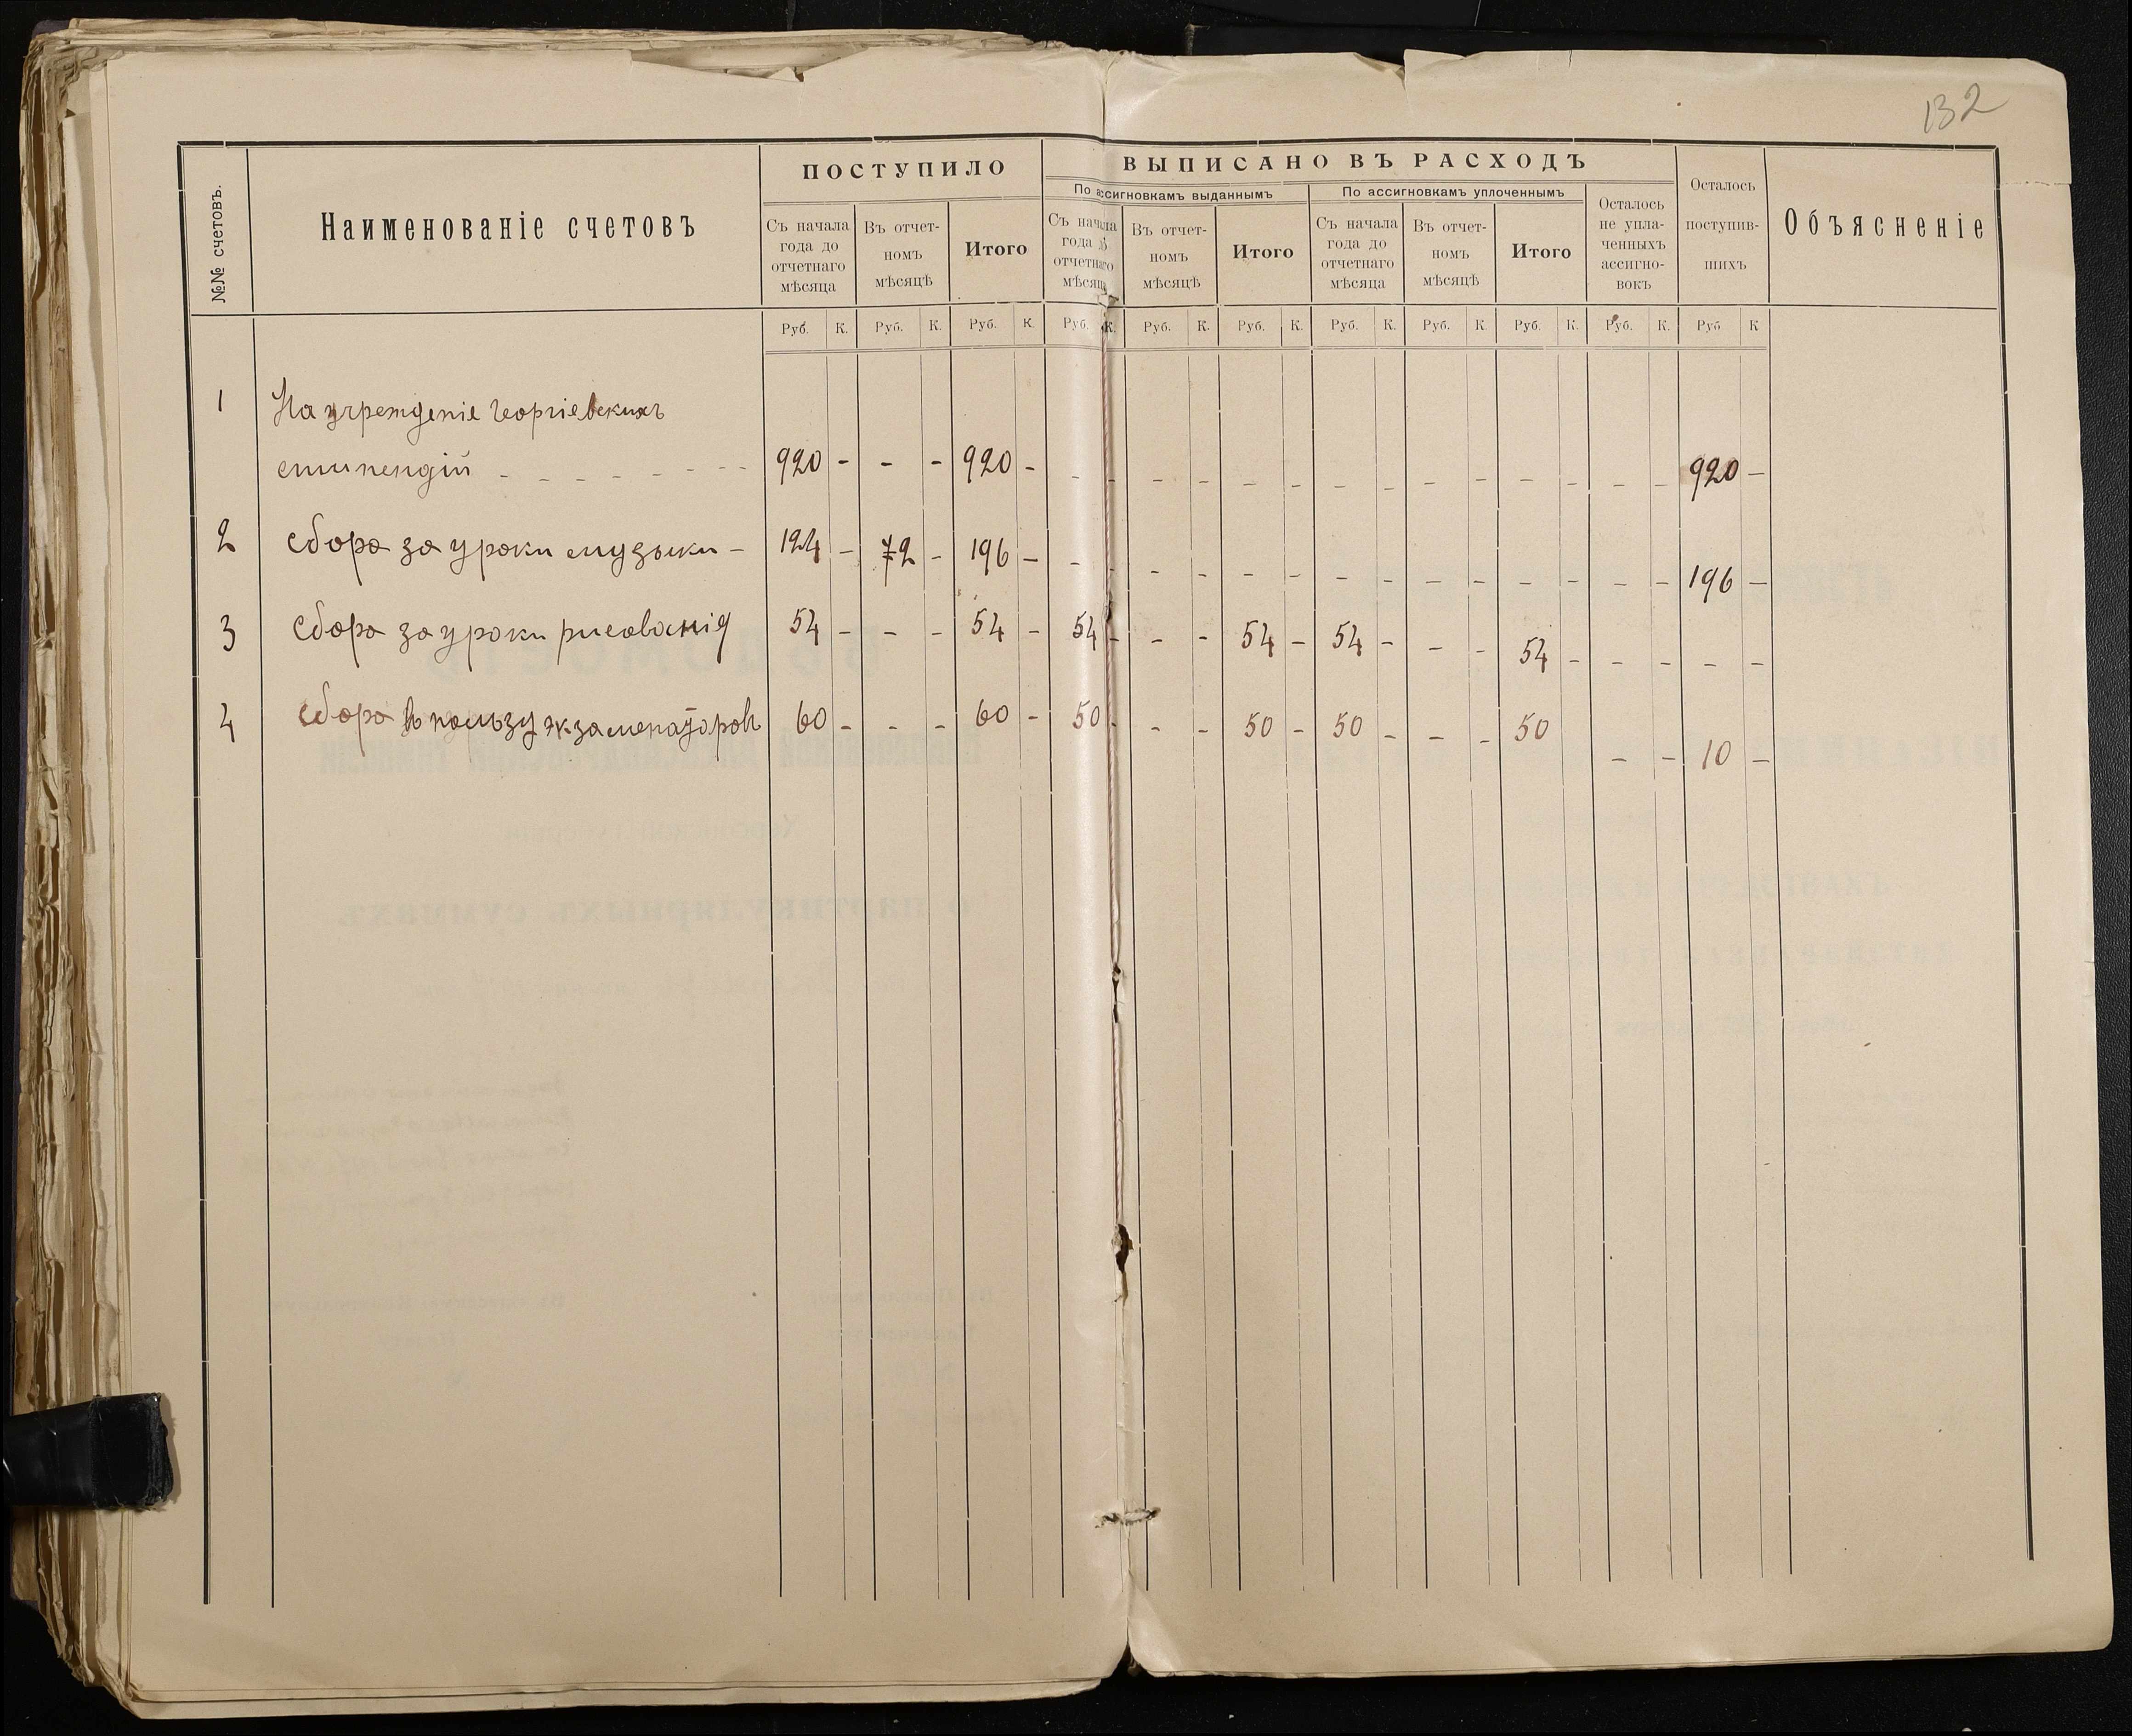 132
№№ счетовъ.
Наименованіе счетовъ
ПОСТУПИЛО
ВЫПИСАНО ВЪ РАСХОДЪ
По ассигновкамъ выданнымъ
По ассигновкамъ уплоченнымъ
Съ начала года до отчетнаго мѣсяца
Въ отчет-номъ мѣсяцѣ
Итого
Съ начала года до отчетнаго мѣсяца
Въ отчет-номъ мѣсяцѣ
Итого
Съ начала года до отчетнаго мѣсяца
Въ отчет-номъ мѣсяцѣ
Итого
Осталось не упла-ченныхъ ассигно-вокъ
Осталось поступив-шихъ
Объясненіе
Руб. К. Руб. К. Руб. К. Руб. К. Руб. К. Руб. К. Руб. К. Руб. К. Руб. К. Руб. К. Руб К
1 На учрежденіе Георгіевскихъ
стипендій - - - - - - - - 920 - - - 920 - - - - - - - - - - - - - - - - - 920 -
2 Сбора за уроки музыки - 124 - 72 - 196 - - - - - - - - - - - - - - - 196 -
3 Сбора за уроки рисованія 54 - - - 54 - 54 - - - 54 - 54 - - - 54 - - - - -
4 Сбора въ пользу экзаменаторовъ 60 - - - 60 - 50 - - - 50 - 50 - - - 50 - - 10 -